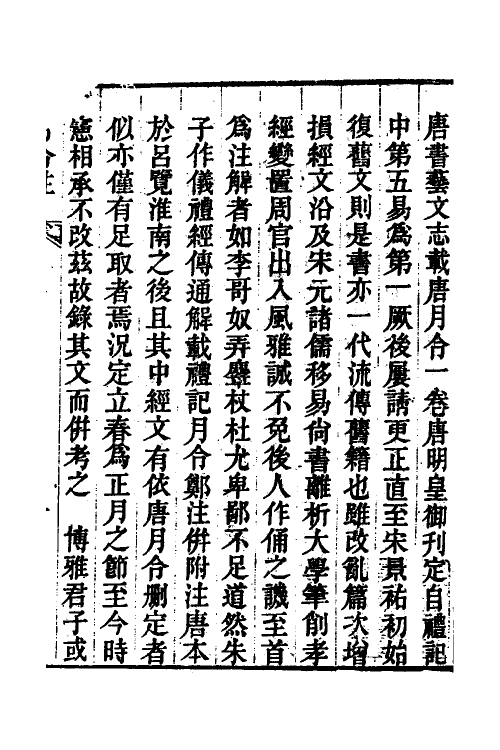 唐書藝文志載唐月令一卷唐明皇御刊定自禮記
中第五易爲第一厥後屢請更正直至宋景祐初始
復舊文則是書亦一代流傳舊籍也雖改亂篇次增
損經文沿及宋元諸儒移易尙書離析大學筆創孝
經變置周官出入風雅誠不免後人作俑之譏至首
爲注解者如李哥奴弄麞杖杜尤卑鄙不足道然朱
子作儀禮經傳通解載禮記月令鄭注倂附注唐本
於呂覽淮南之後且其中經文有依唐月令刪定者
似亦僅有足取者焉況定立春爲正月之節至今時
憲相承不改茲故錄其文而倂考之　博雅君子或